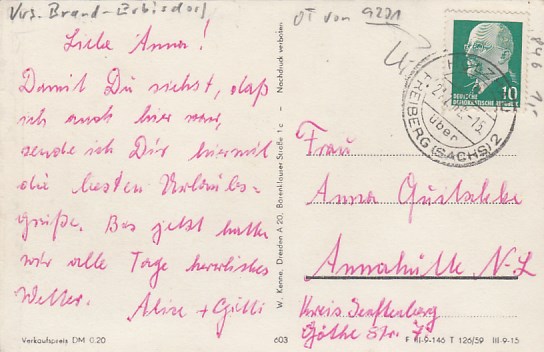 Krs. Brand-Erbisdorf
OT von 9201
Liebe Anna!
Damit Du siehst, daß
ich auch hier war,
sende ich Dir hiermit
die besten Urlaubs-
grüße. Bis jetzt hatten
wir alle Tage herrliches
Wetter.
Alise + Gitti
Verkaufspreis DM 0.20
603
W. Kenne, Dresden A 20, Bärenklauser Straße 1c – Nachdruck verboten
10
DEUTSCHE
DEMOKRATISCHE REPUBLIK
über
FREIBERG (SACHS) 2
Frau
Anna
Annahütte N-L
Kreis Senftenberg
Göthe Str. 7
III-9-146 T 126/59 III-9-15